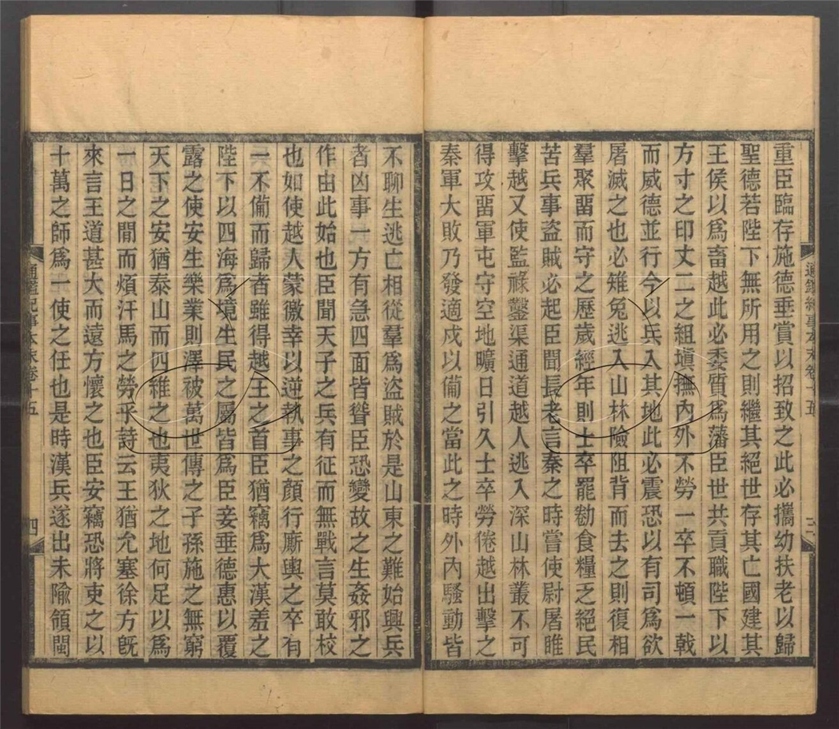 重臣臨存施德垂賞以招致之此必攜幼扶老以歸
聖德若陛下無所用之則繼其絕世存其亡國建其
王侯以爲畜越此必委質爲藩臣世共貢職陛下以
方寸之印丈二之組塡撫內外不勞一卒不頓一戟
而威德並行今以兵入其地此必震恐以有司爲欲
屠滅之也必雉兔逃入山林險阻背而去之則復相
羣聚畱而守之歷歲經年則士卒罷勌食糧乏絕民
苦兵事盜賊必起臣聞長老言秦之時嘗使尉屠睢
擊越又使監祿鑿渠通道越人逃入深山林叢不可
得攻畱軍屯守空地曠日引久士卒勞倦越出擊之
秦軍大敗乃發適戍以備之當此之時外內騷動皆
不聊生逃亡相從羣爲盜賊於是山東之難始興兵
者凶事一方有急四面皆聳臣恐變故之生姦邪之
作由此始也臣聞天子之兵有征而無戰言莫敢校
也如使越人蒙徼幸以逆執事之顏行廝輿之卒有
一不備而歸者雖得越王之首臣猶竊爲大漢羞之
陛下以四海爲境生民之屬皆爲臣妾垂德惠以覆
露之使安生樂業則澤被萬世傳之子孫施之無窮
天下之安猶泰山而四維之也夷狄之地何足以爲
一日之閒而煩汗馬之勞乎詩云王猶允塞徐方旣
來言王道甚大而遠方懷之也臣安竊恐將吏之以
十萬之師爲一使之任也是時漢兵遂出未隃領閩
通鑑紀事本末卷十五
四